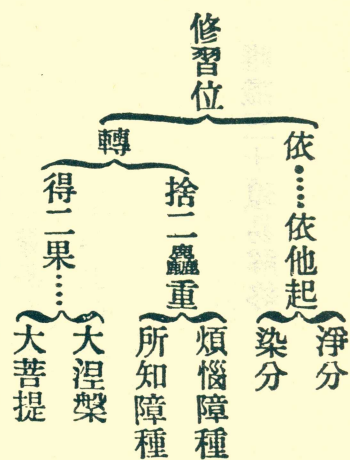 修習位
依……依他起
淨分
染分
轉
捨二麤重
煩惱障種
所知障種
得二果……
大涅槃
大菩提